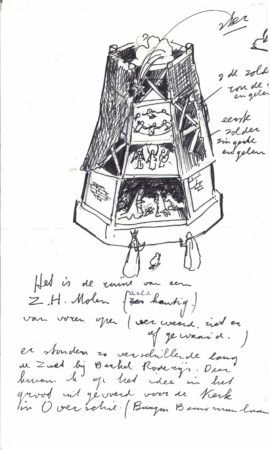 ster
2 de zolder
ron de
engelen
eerste
zolder
zingende
engelen
Het is de ruïnt van een
Z.H. Molen (acht kantig)
van voren open (verweerd, riet er
af gewaaid.)
er stonden zo verschillende lang
de Zwet by Berkel Rodenrijs. Daar
kwam ik op het idee in het
groot uit gevoerd voor de Kerk
in Overschie. (Burgem Baumannlaan